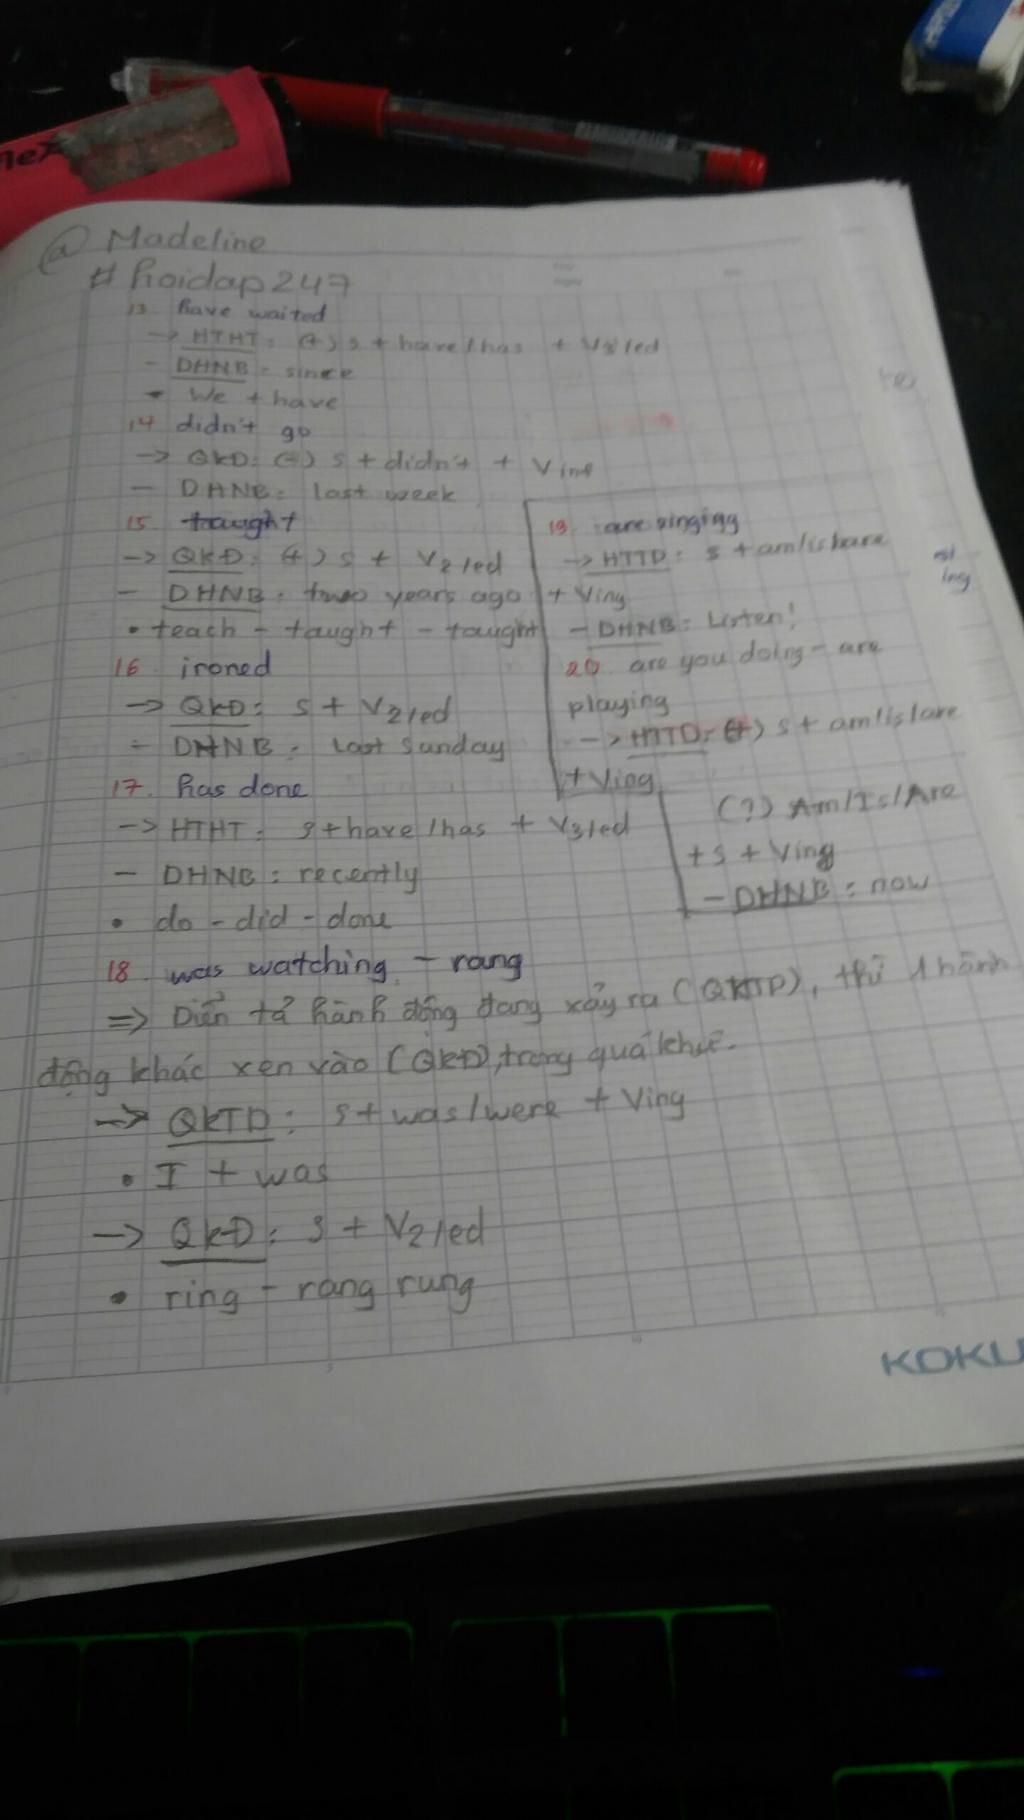 @ Madeline
# hoidap247
13. have waited
→ HTHT: (+) s + have/has + V3/ed
- DHNB: since
• We + have
14 didn't go
→ QKD: (-) s + didn't + Vinf
- DHNB: last week
15. taught
→ QKD: (+) s + V2/ed
- DHNB: two years ago
• teach - taught - taught
16. ironed
→ QKD: s + V2/ed
- DHNB: last sunday
17. has done
→ HTHT: s + have/has + V3/ed
- DHNB: recently
• do - did - done
18. was watching - rang
⇒ Diễn tả hành động đang xảy ra (QKTD), thì 1 hành
động khác xen vào (QKD), trong quá khứ.
→ QKTD: s + was/were + Ving
• I + was
→ QKD: s + V2/ed
• ring - rang rung
19. are singing
→ HTTD: s + am/is/are
+ Ving
- DHNB: Listen!
20. are you doing - are
playing
-> HTTD: (+) s + am/is/are
+ Ving
(?) Am/Is/Are
+ s + Ving
- DHNB: now
ing
KOKU